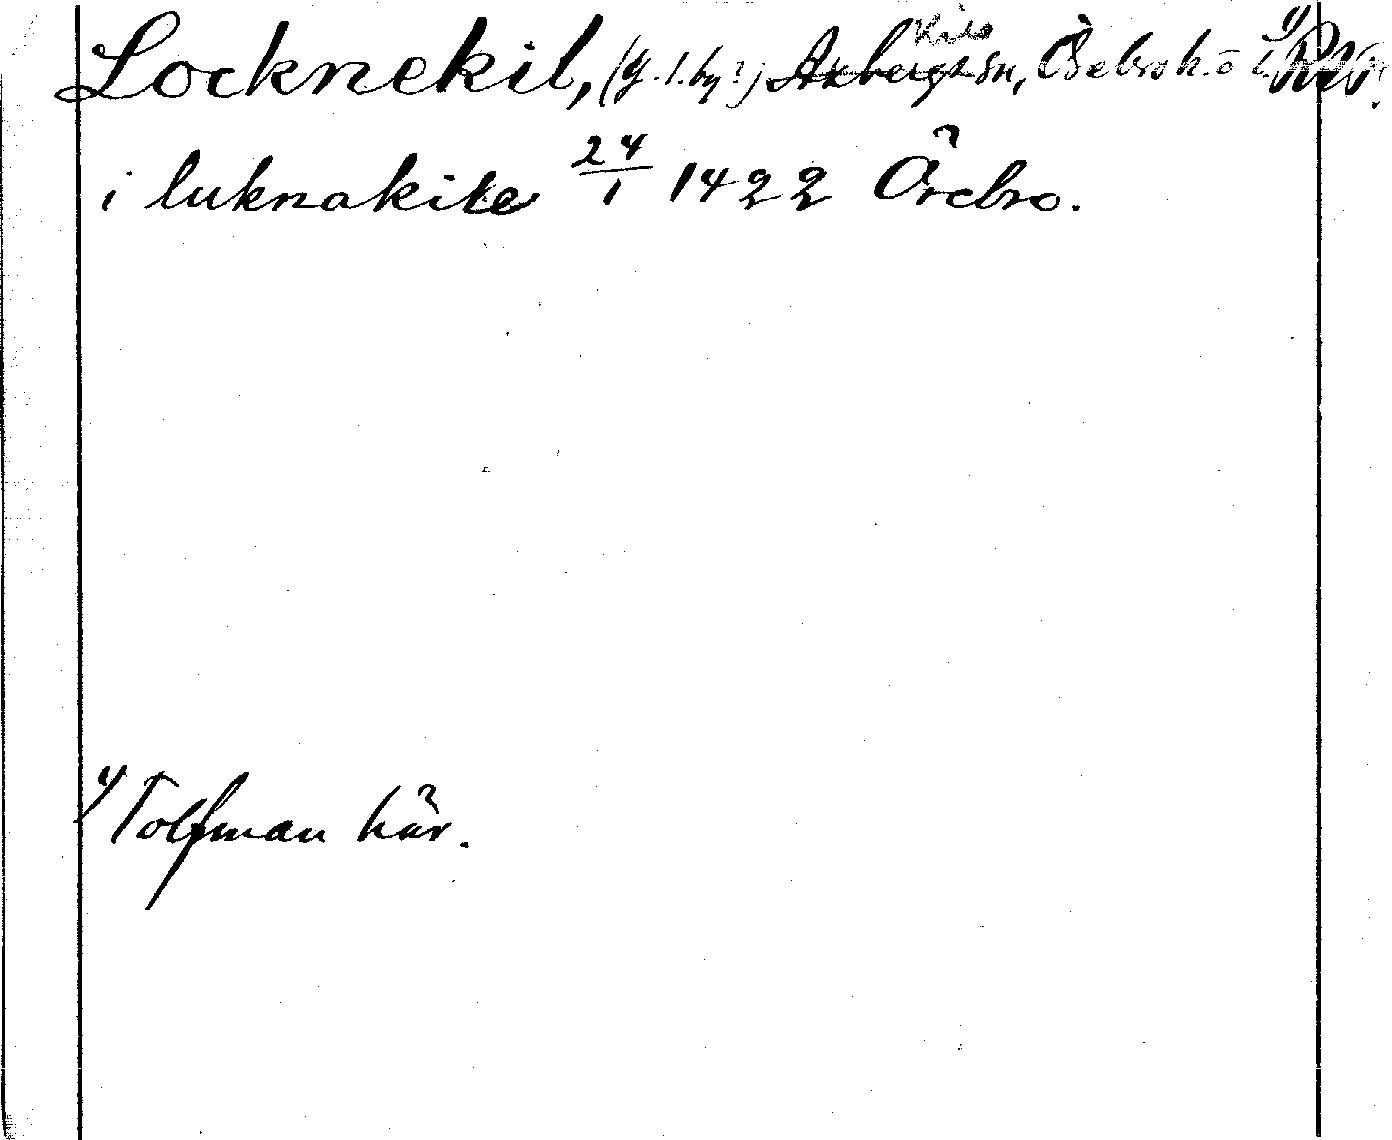 Locknekil, (g. l. by?) Axbergs Kils sn, Örebro h. o l.
i luknakile 24/1 1422 Örebro.
1/ Tolfman här.